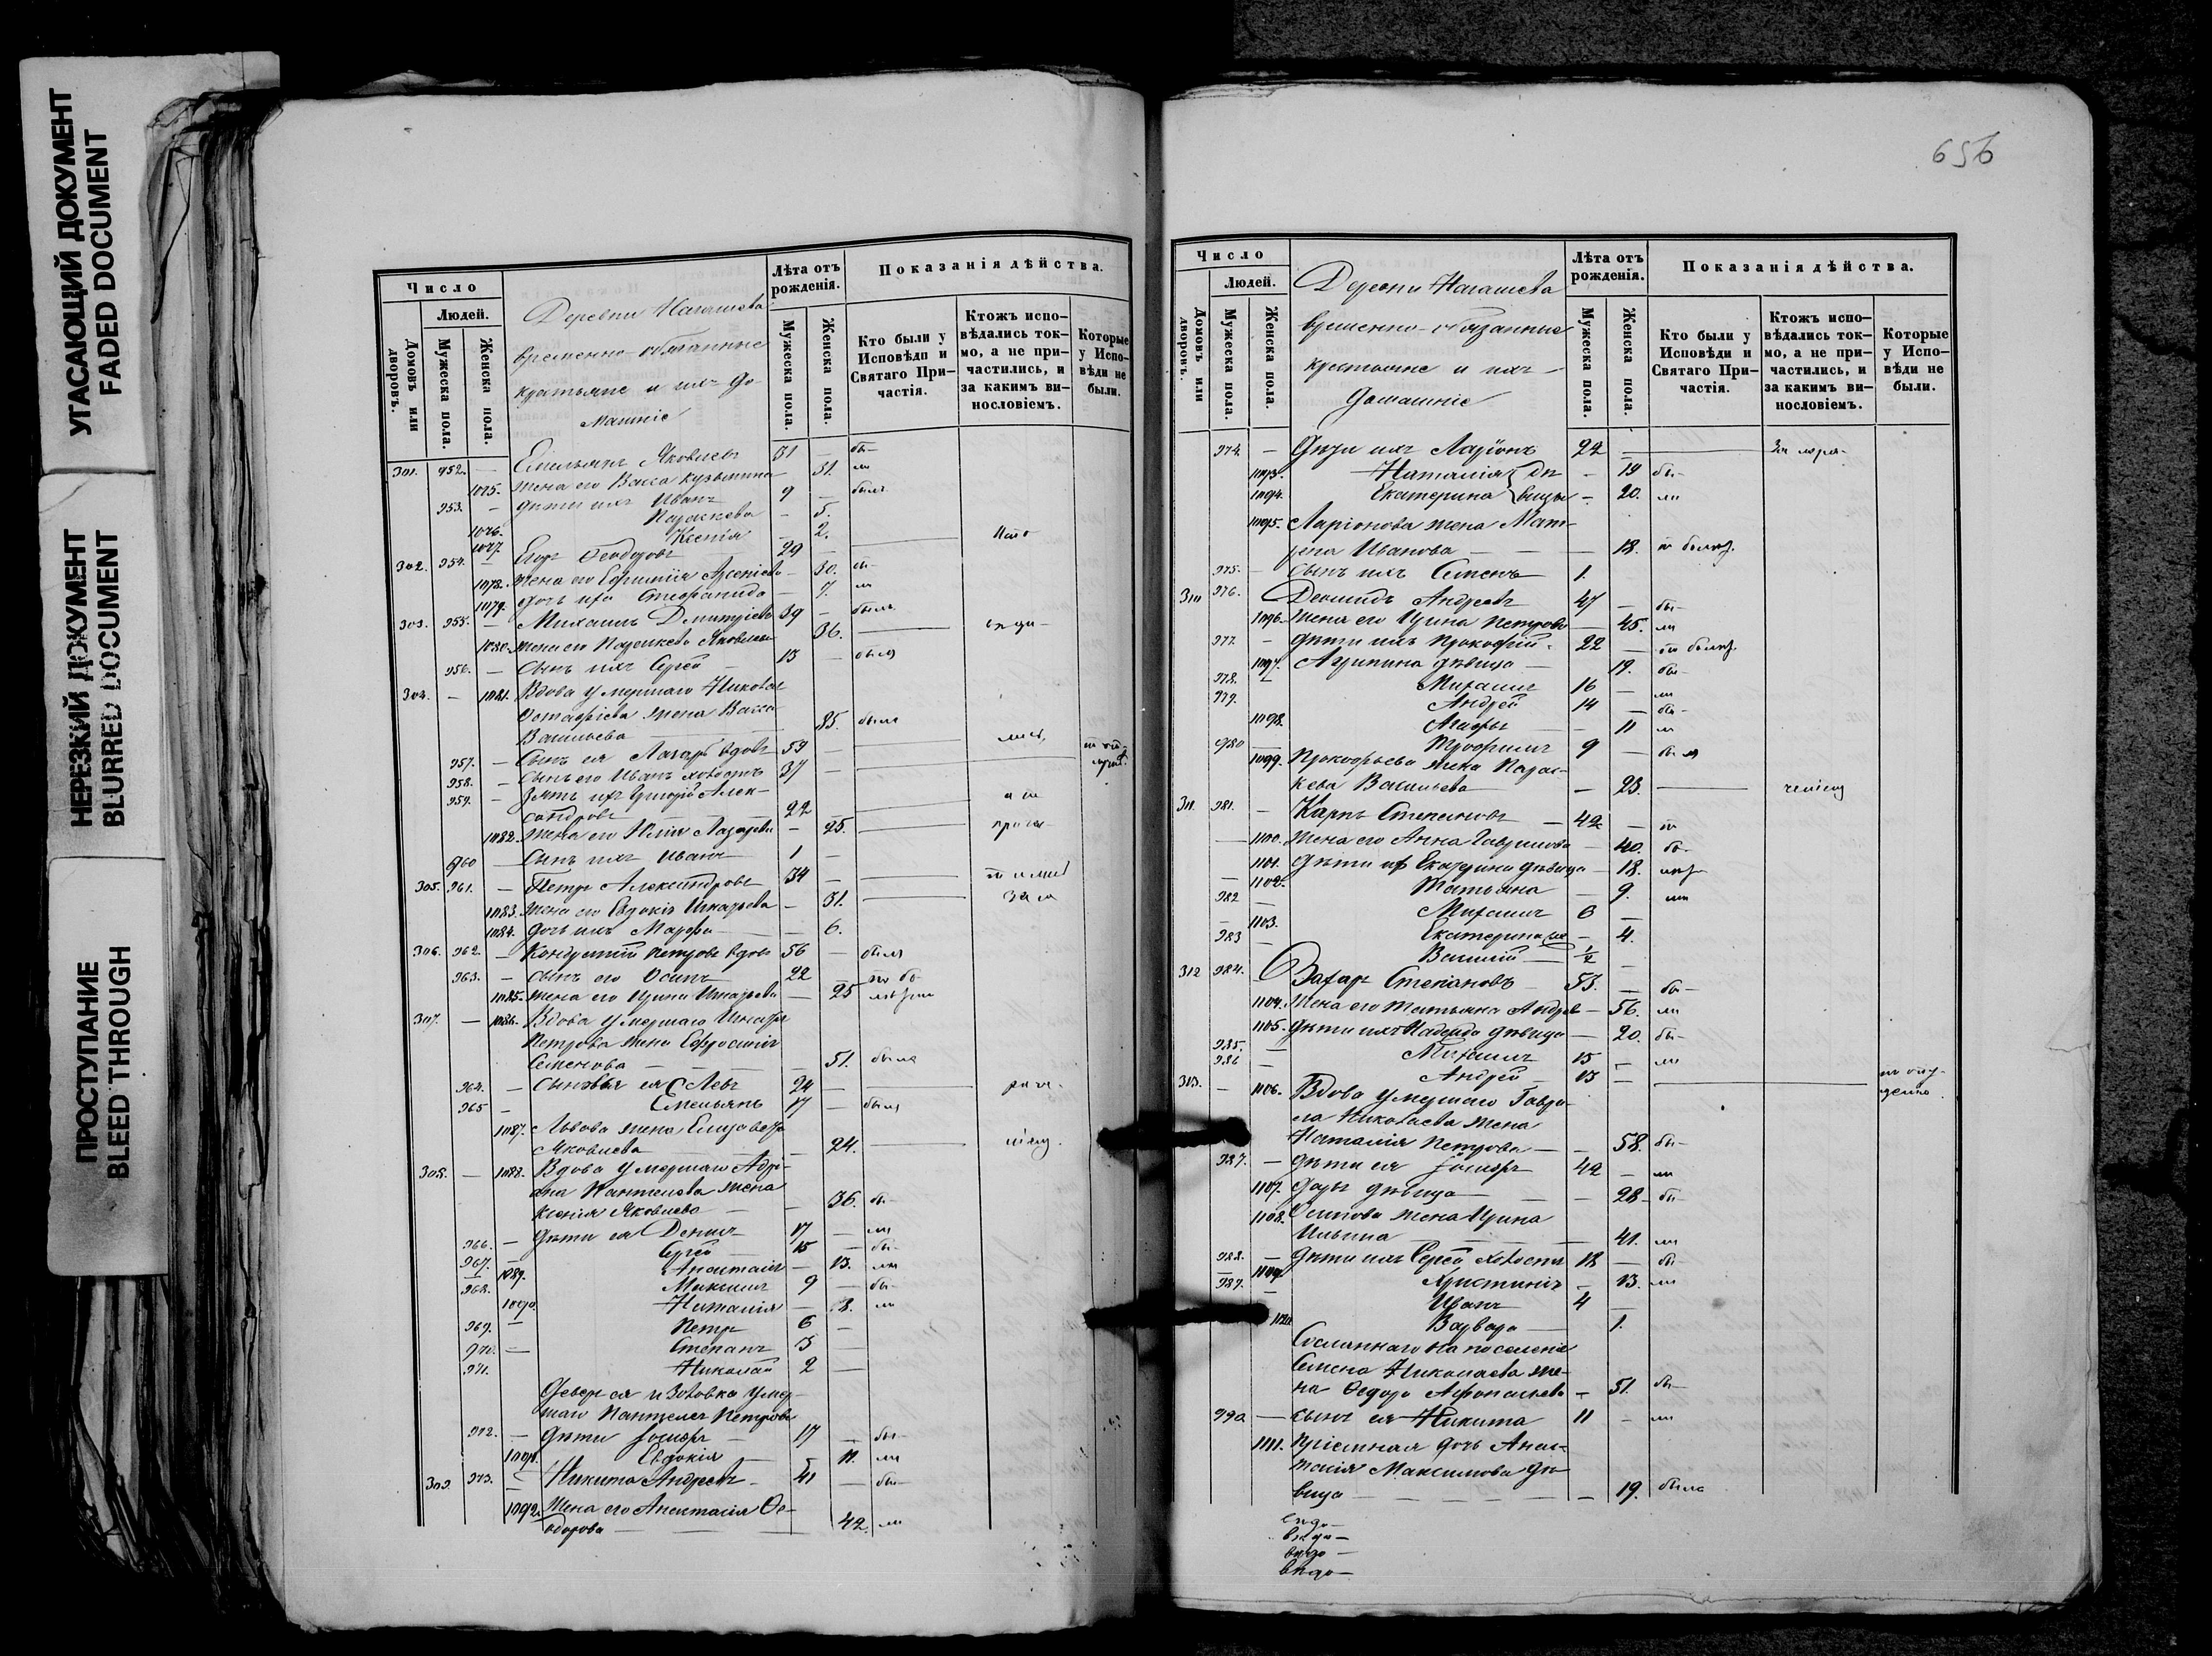 УГАСАЮЩИЙ ДОКУМЕНТ
FADED DOCUMENT
НЕРЕЗКИЙ ДОКУМЕНТ
BLURRED DOCUMENT
ПРОСТУПАНИЕ
BLEED THROUGH
Число
Людей.
Домовъ или дворовъ.
Мужеска пола.
Женска пола.
Деревни
временно-обязанные
крестьяне и ихъ до-
машніе
Лѣта отъ рожденія.
Мужеска пола.
Женска пола.
Показанія дѣйства.
Кто были у Исповѣди и Святаго При-частія.
Ктожъ испо-вѣдались ток-мо, а не при-частились, и за какимъ ви-нословіемъ.
Которые у Испо-вѣди не были.
301. 952. — Емельянъ Яковлевъ 31 — бы-
1075. жена его Васса Кузьмина 31. ли
953. — дѣти ихъ Иванъ 9 — былъ
1076. Параскева — 5.
1077. Ксенія — 2.
302. 954. — Егоръ Ѳеодоровъ 29 —
1078. жена его Ефимія Арсеніева — 30. бы-
1079. дочь ихъ Стефанида — 7. ли
303. 955. — Михаилъ Димитріевъ 39 — былъ
1080. жена его Параскева Яковлева 36.
956. — Сынъ ихъ Сергей 13 — былъ
304. — 1081. Вдова умершаго Николая
Остафіева жена Васса
Васильева 85. была
957. — Сынъ ея Лазарь вдовъ 59 —
958. — Сынъ его Иванъ холостъ 37 —
959. — Зять ихъ Григорій Алек-
сандровъ 22
1082. жена его Юлія Лазарева — 25.
960 — Сынъ ихъ Иванъ 1 —
305. 961. — Петръ Александровъ 34 —
1083. жена его Евдокія Игнатьева — 31.
1084. дочь ихъ Марфа — 6.
306. 962. — Кондратій Петровъ вдовъ 56 — былъ
963. — сынъ его Осипъ 22 —
1085. жена его Ирина Игнатьева — 25
307. — 1086. Вдова умершаго Игнатія
Петрова жена Ефросинія
Семенова 51. была
964. — Сыновья ея Левъ 24 —
965 — Емельянъ 17 — былъ
1087. Львова жена Елизавета
Яковлева 24.
308. — 1088. Вдова умершаго Адрі-
ана Пантелеева жена
Ксенія Яковлева — 36. бы-
966. — дѣти ея Денисъ 17 — ли
967. Сергей 15 — бы-
1089. Анастасія — 13. ли
968. Максимъ 9 — бы-
1090 Наталія — 8. ли
969. — Петръ 6 —
970. — Степанъ 3
971. Николай 2 —
Деверь ея и Золовка умер-
шаго Пантелея Петрова
972. — дѣти Іосифъ 17 — бы-
1091. Евдокія — 11. ли
309. 973. — Никита Андреевъ 41 — бы-
1092. жена его Анастасія Ѳе-
одорова 42. ли
656
Число
Людей.
Домовъ или дворовъ.
Мужеска пола.
Женска пола.
Деревни
временно-обязанные
крестьяне и ихъ
домашніе
Лѣта отъ рожденія.
Мужеска пола.
Женска пола.
Показанія дѣйства.
Кто были у Исповѣди и Святаго При-частія.
Ктожъ испо-вѣдались ток-мо, а не при-частились, и за какимъ ви-нословіемъ.
Которые у Испо-вѣди не были.
974. — Дѣти ихъ Ларіонъ 22 —
1093. Наталія дѣ- — 19 бы-
1094. Екатерина вицы — 20. ли
1095. Ларіонова жена Мат-
рена Иванова — 18.
975. — Сынъ ихъ Семенъ 1.
310 976. Деомидъ Андреевъ 47 — бы-
1096. Жена его Ирина Петрова 45. ли
977. — Дѣти ихъ Прокофій 22 —
1097. Агрипина дѣвица — 19. бы-
978. — Михаилъ 16 — ли
979. Андрей 14 — бы-
1098. Агафья — 11 ли
980 — Трофимъ 9 — былъ
1099. Прокофьева жена Парас-
кева Васильева — 23.
311. 981. — Карпъ Степановъ 42 —
1100. Жена его Анна Гаврилова — 40. бы-
1101. Дѣти ихъ Екатерина дѣвица — 18.
1102. Татьяна — 9. ли
982 — Михаилъ 6 —
1103. Екатерина — 4.
983 — Василій 1/2
312 984. — Захаръ Степановъ 55. — бы-
1104. Жена его Татьяна Андрев — 56. ли
1105. Дѣти ихъ Надежда дѣвица — 20. бы-
985. — Михаилъ 15 — ли
986 Андрей 13 —
313. — 1106. Вдова умершаго Гаври-
ла Николаева жена
Наталія Петрова — 58. бы-
987. — дѣти ея Іосифъ 42 — ли
1107. Дарья дѣвица — 28 бы-
1108. Осипова жена Ирина
Ильина 41. ли
988. — Дѣти ихъ Сергей холостъ 18 — бы-
1109 Христинія — 13. ли
989. — Иванъ 4 —
1110 Варвара 1.
Сосланнаго на поселеніе
Семена Николаева же-
на Ѳедора Афонасьева — 51. бы-
990. — сынъ ея Никита 11 — ли
1111. Пріемная дочь Анас-
тасія Максимова дѣ-
вица 19. была